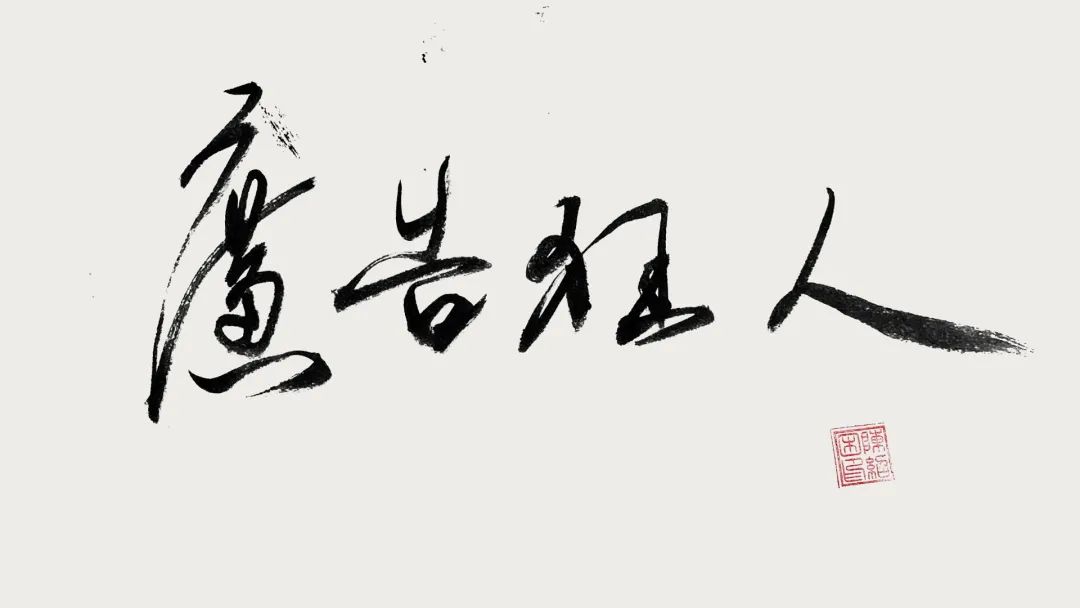 廣告狂人